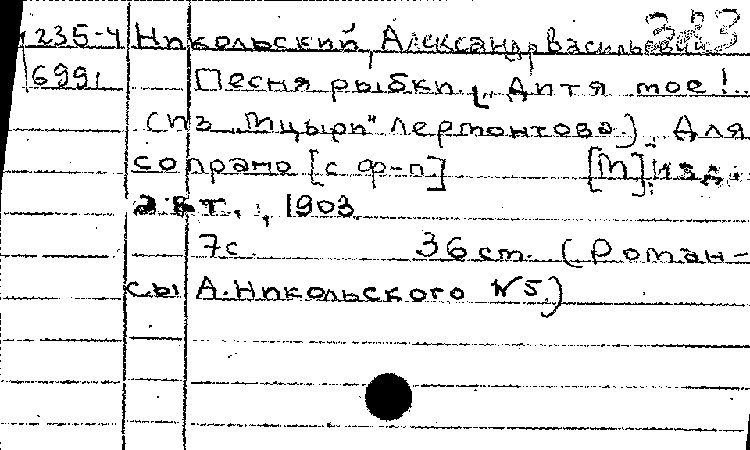 323
235-4 Никольский, Александр Васильевич
6991 Песня рыбки. („Дитя мое!..
(из „Мцыри" Лермонтова.). Для
сопрано [с ф-п] [М]: изд.
авт., 1903.
7с. 36 см. (Роман-
сы А. Никольского №5.)